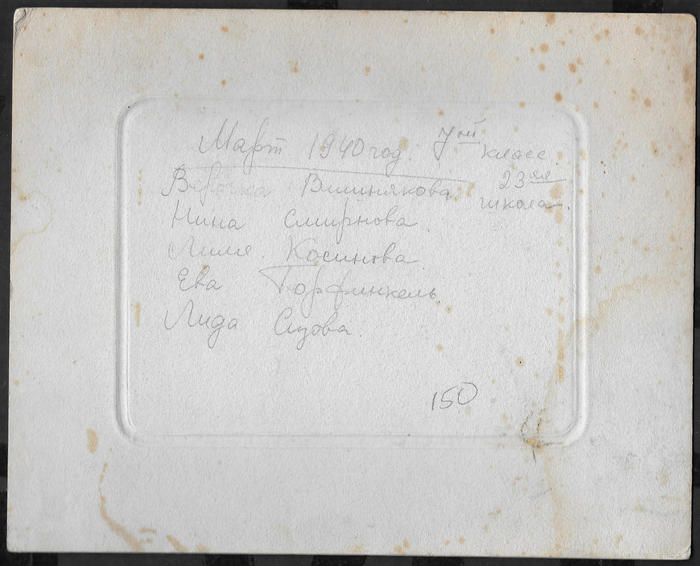 Март 1940 год. 7ой класс.
Верочка Вишнякова 23ья школа.
Нина Смирнова
Лиля Косинова
Ева Горфинкель.
Лида Сизова.
150